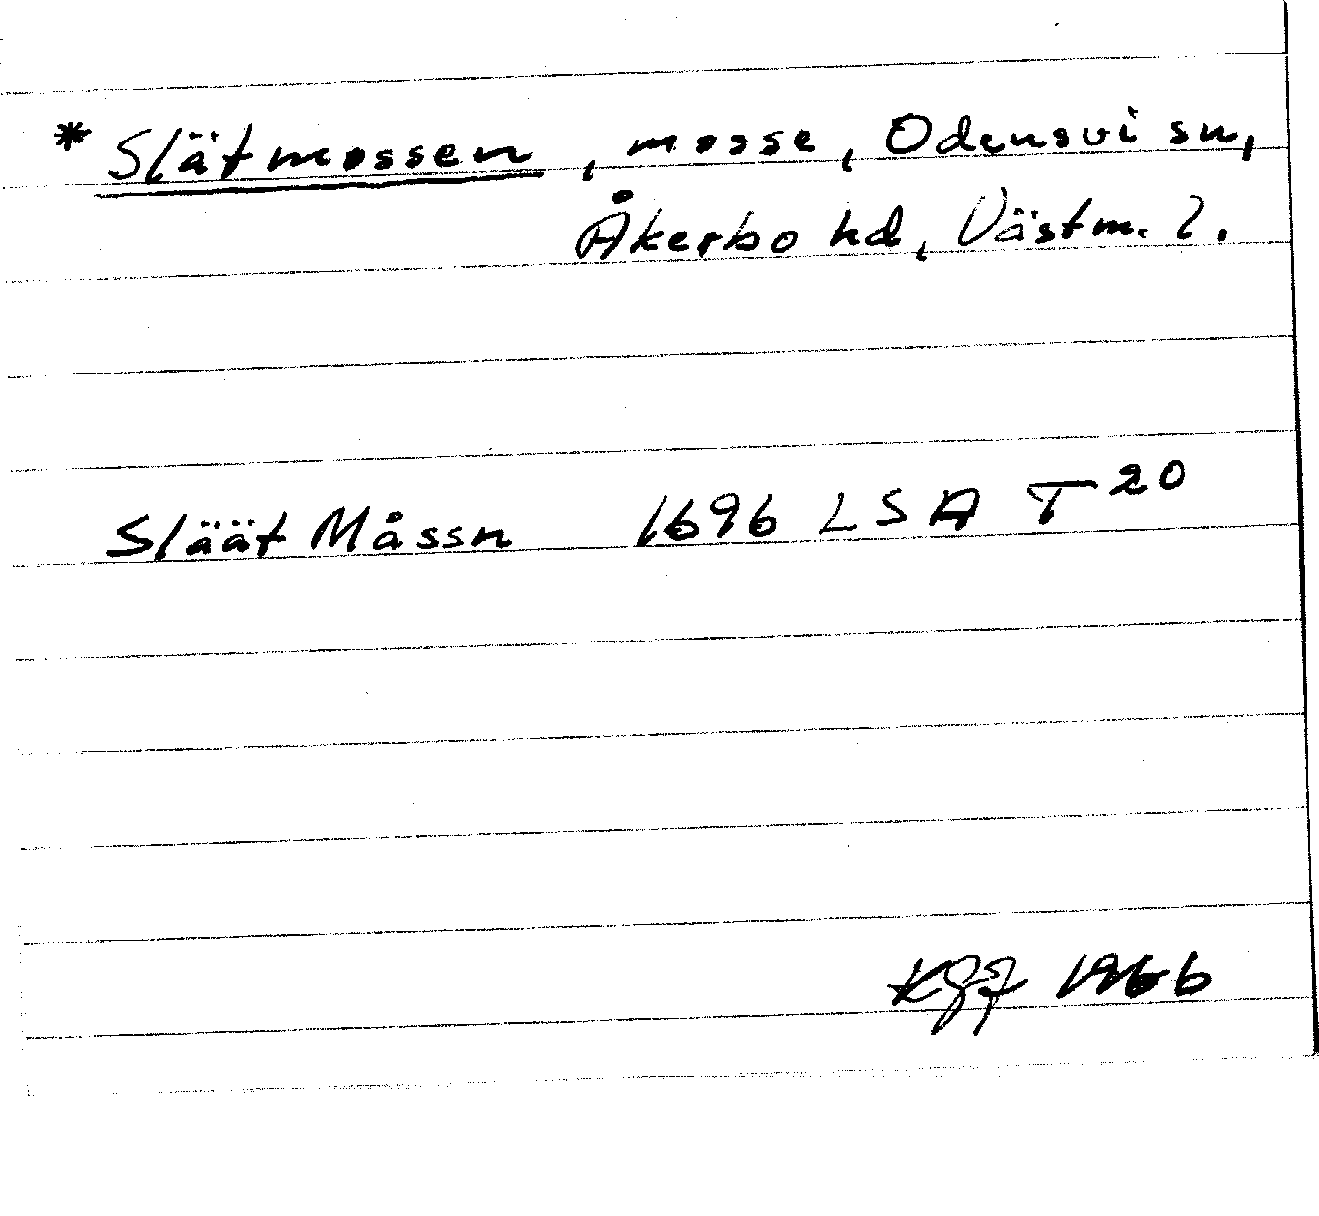 * Slätmossen, mosse, Odensvi sn,
Åkerbo hd, Västm. l.
Släät Måssn 1696 LSA T20
1966